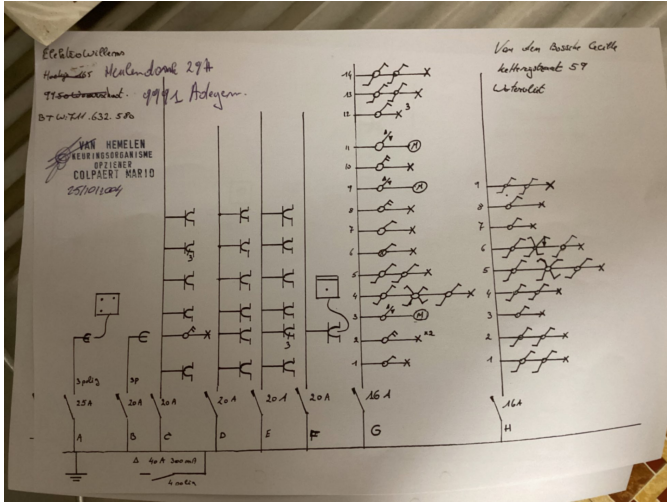 Elektro Willems
Meulendonk 29A
9991 Adegem.
BTW: 711.632.580
VAN HEMELEN
KEURINGSORGANISME
OPZIENER
COLPAERT MARIO
25/10/2004
Van den Bossche Cecille
59
14
13
12
3
11
M
10
9
M
8
7
6
5
4
3
M
2
x2
1
9
8
7
6
5
4
3
2
1
3
3
3polig
3p
25A
20A
20A
20A
20A
20A
16A
16A
A
B
C
D
E
F
G
H
Δ 40A 300mA
4polig